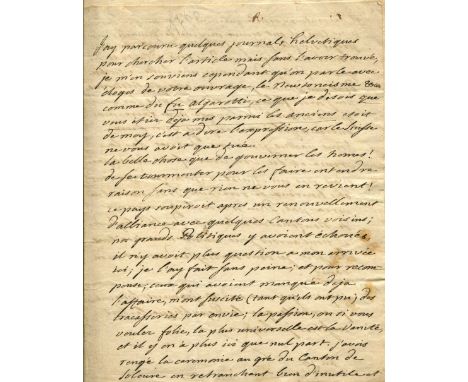 Jay parcouru quelques journals helvetiques
pour chercher l'article mais sans l'avoir trouvé,
je m'en souviens cependant qu'on parle avec
eloges de votre ouvrage, le Neutonisme
comme du feu Algarotti, ce que je desois que
vous etiez deja mis parmi les anciens etoit
de moy, c'est a dire l'expression, car le Suisse
ne vous avoit que tué.
la belle chose que de gouverner les homes!
de se tourmenter pour les faire entendre
raison sans que rien ne vous en revient!
ce pays soupiroit apres un renouvellement
d'alliance avec quelques Cantons voisins;
nos grands Politiques y avoient echoués,
il n'y avoit plus question a mon arrivée
ici; je l'ay fait sans peine; et pour recom
pense; ceux qui avoient manqué deja
l'affaire, m'ont suscité (tant qu'ils ont pu) des
tracasseries par envie; la passion, ou si vous
voulez folie, la plus universelle est la Vanité,
et il y en a plus ici que nul part. j'avois
rengé la ceremonie au gré du Canton de
Soleure en retranchant bien d'inutile et